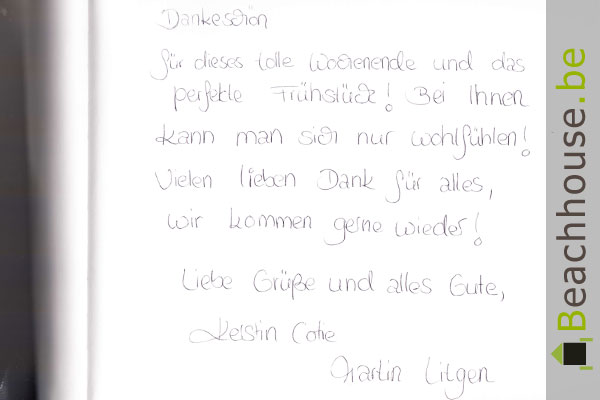 Dankeschön
für dieses tolle Wochenende und das
perfekte Frühstück! Bei Ihnen
kann man sich nur wohlfühlen!
Vielen lieben Dank für alles,
wir kommen gerne wieder!
Liebe Grüße und alles Gute,
Kerstin Cohe
Martin Litgen
Beachhouse.be